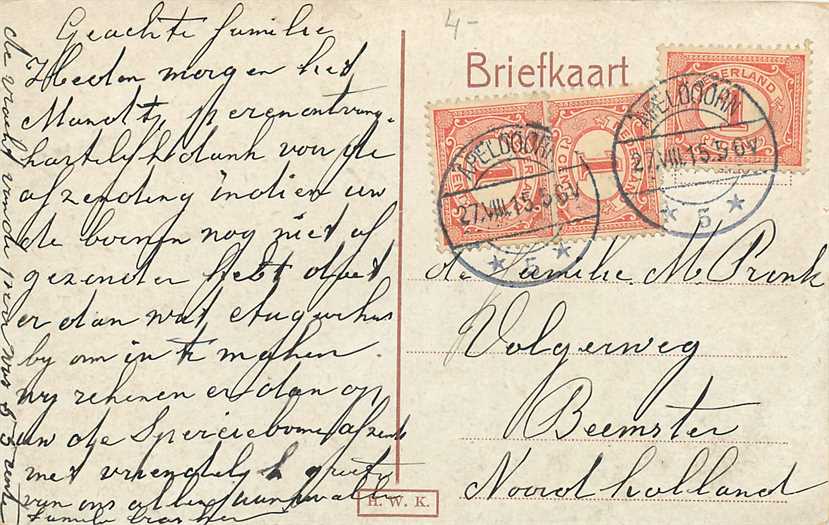 Geachte familie
Heden morgen het
Mandtje peren ontvang-
hartelijk dank voor de
afzending indien uw
de boonen nog niet af
gezonden hebt doet
er dan wat
by om in te maken
wy rekenen er dan op
uw de afzend
met vriendelijk groet
van ons allen
Familie
de vracht van de peren was 65 cente
4-
Briefkaart
NEDERLAND
1
APELDOORN
27.VIII.15.5-6V
5
APELDOORN
27.VIII.15.5-6V
5
de Familie M. Pronk
Volgerweg
Beemster
Noord holland
H. W. K.